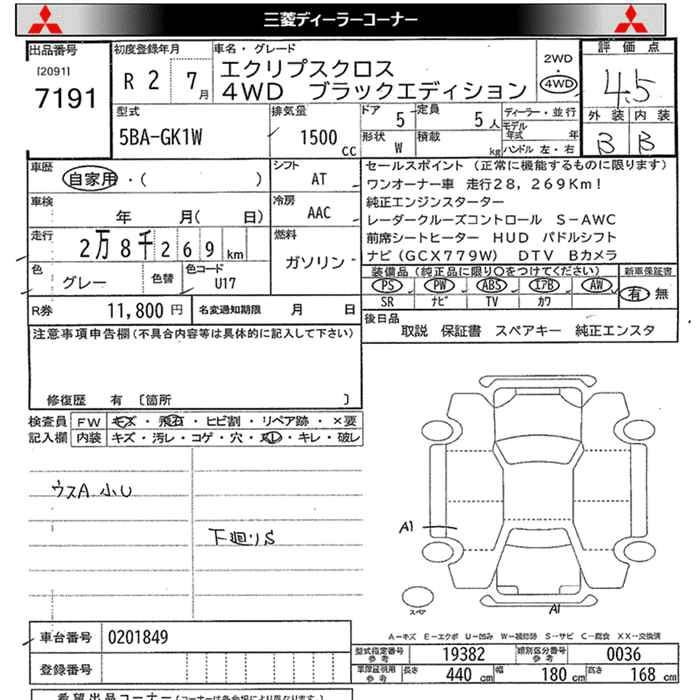 三菱ディーラーコーナー
出品番号
[2091]
7191
初度登録年月
R 2 7月
車名・グレード
エクリプスクロス
4WD ブラックエディション
2WD
・
4WD
評価点
4.5
外装 内装
B B
型式
5BA-GK1W
排気量
1500 CC
ドア 5
定員 5人
形状 W
積載 kg
ディーラー・並行
モデル年式 年
ハンドル 左・右
車歴
自家用・( )
シフト
AT
車検
年 月( 日)
冷房
AAC
走行
2万8千269km
燃料
ガソリン
色
グレー
色替
色コード
U17
R券 11,800円
名変通知期限 月 日
セールスポイント (正常に機能するものに限ります)
ワンオーナー車 走行28,269Km!
純正エンジンスターター
レーダークルーズコントロール S-AWC
前席シートヒーター HUD パドルシフト
ナビ(GCX779W) DTV Bカメラ
装備品(純正品に限り○をつけてください)
PS PW ABS エアB AW
SR ナビ TV カワ
新車保証書
有 無
後日品
取説 保証書 スペアキー 純正エンスタ
注意事項申告欄(不具合内容等は具体的に記入して下さい)
修復歴 有 〔箇所 〕
検査員記入欄
FW キズ・飛石・ヒビ割・リペア跡・×要
内装 キズ・汚レ・コゲ・穴・ヌレ・キレ・破レ
ウスA 小U
下廻りS
A1
スペア
A1
A-キズ E-エクボ U-凹み W-補修跡 S-サビ C-腐食 XX-交換済
車台番号 0201849
登録番号
型式指定番号 参考 19382
類別区分番号 参考 0036
車両証明用 参考 長さ 440 cm 幅 180 cm 高さ 168 cm
希望出品コーナー(コーナーは各会場により異なります。)